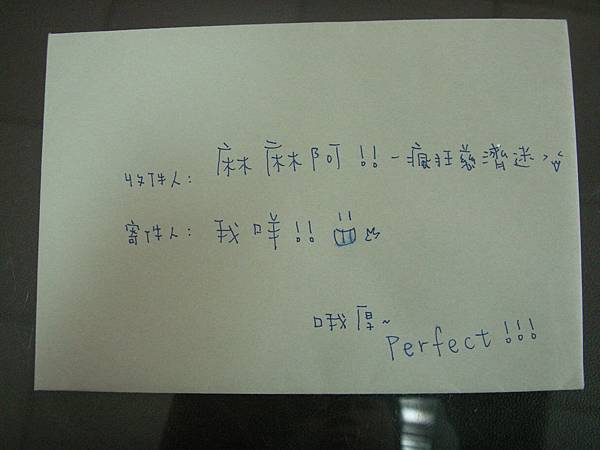 收件人: 麻麻阿!!-瘋狂慈濟迷
寄件人: 我咩!!
哦厚~
Perfect!!!